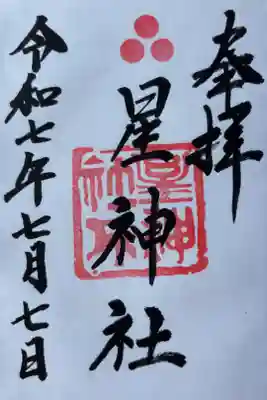 奉拝
星神社
星神社
令和七年七月七日